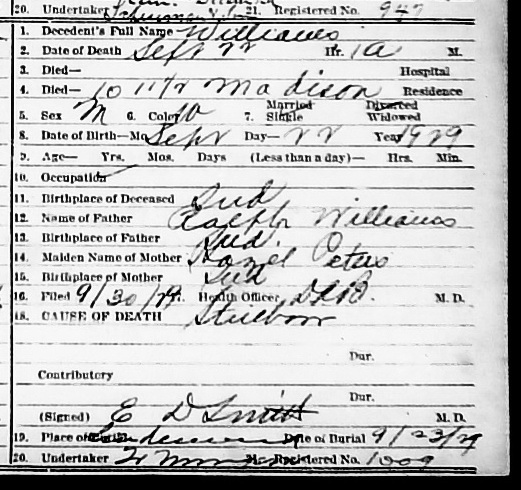 20. Undertaker 21. Registered No. 947
1. Decedent's Full Name Williams
2. Date of Death Sept 22 Hr. 1 a M.
3. Died— Hospital
4. Died— 10 11½ Madison Residence
5. Sex M 6. Color W 7. Married Single Divorced Widowed
8. Date of Birth—Mo. Sept Day— 22 Year 1929
9. Age— Yrs. Mos. Days (Less than a day)— Hrs. Min.
10. Occupation
11. Birthplace of Deceased Ind
12. Name of Father Ralph Williams
13. Birthplace of Father Ind.
14. Maiden Name of Mother Hazel Peters
15. Birthplace of Mother Ind
16. Filed 9/30/29. Health Officer, M. D.
18. CAUSE OF DEATH Stillborn
Dur.
Contributory
Dur.
(Signed) E D Smith M. D.
19. Place of Date of Burial 9/23/29
20. Undertaker Registered No. 1009